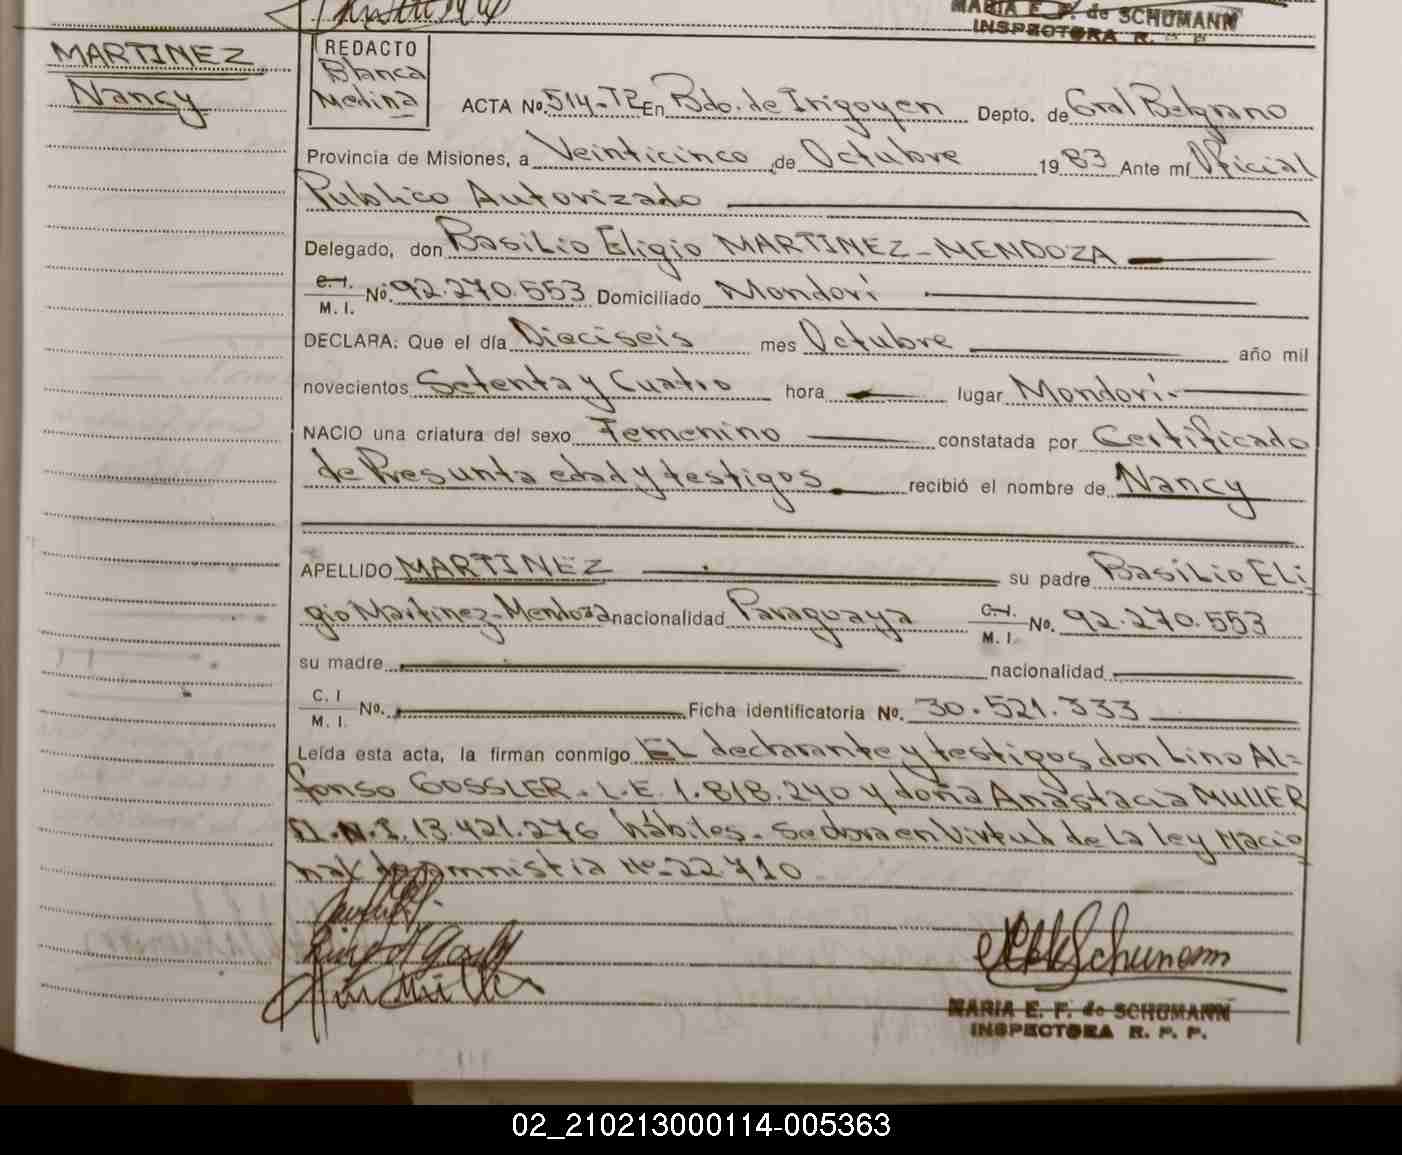 MARIA E. F. de SCHUMANN
INSPECTORA R. P. P.
MARTINEZ
Nancy
REDACTO
Blanca
Medina
ACTA No. 514-T2 En Bdo. de Irigoyen Depto. de Gral Belgrano
Provincia de Misiones, a Veinticinco de Octubre 1983 Ante mí Oficial
Publico Autorizado
Delegado, don Basilio Eligio MARTINEZ-MENDOZA
C.I. M. I. No. 92.270.553 Domiciliado Mondorí
DECLARA: Que el día Dieciseis mes Octubre año mil
novecientos Setenta y Cuatro hora lugar Mondorí-
NACIO una criatura del sexo Femenino constatada por Certificado
de Presunta edad y testigos recibió el nombre de Nancy
APELLIDO MARTINEZ su padre Basilio Eli-
gio Martinez-Mendoza nacionalidad Paraguaya C.I. M. I. No. 92.270.553
su madre nacionalidad
C. I M. I. No. Ficha identificatoria No. 30.521.333
Leída esta acta, la firman conmigo EL declarante y testigos don Lino Al=
fonso GOSSLER. L.E. 1.818.240 y doña Anastacia MULLER
D.N.I. 13.421.276 hábiles. Se labra en Virtud de la ley Nacio-
nal de amnistia No. 22.710
Schumann
MARIA E. F. de SCHUMANN
INSPECTORA R. P. P.
02_210213000114-005363